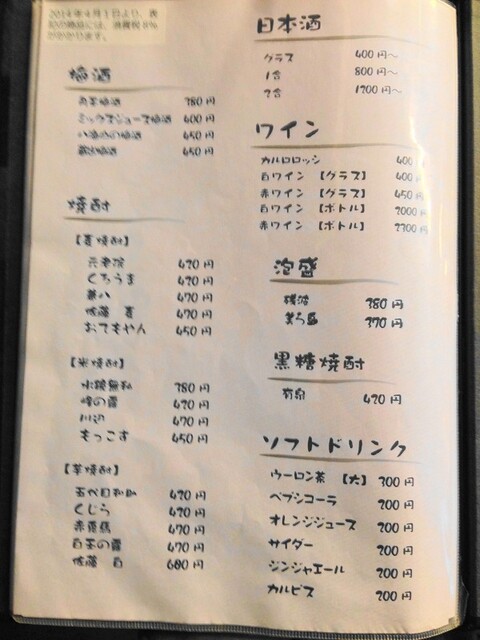 2014年4月1日より、表
記の商品には、消費税8%
がかかります。
梅酒
380円
ミックスジュース梅酒 400円
梅酒 450円
梅酒 450円
焼酎
【麦焼酎】
元老院 420円
くろうま 420円
兼八 470円
佐藤 麦 470円
おてもやん 450円
【米焼酎】
水鏡無私 380円
峰の露 420円
川辺 420円
もっこす 450円
【芋焼酎】
五代目和助 420円
くじら 420円
赤兎馬 470円
白玉の露 470円
佐藤 白 680円
日本酒
グラス 400円〜
1合 800円〜
2合 1200円〜
ワイン
カルロロッシ 400
白ワイン 【グラス】 400円
赤ワイン 【グラス】 450円
白ワイン 【ボトル】 2000円
赤ワイン 【ボトル】 2300円
泡盛
残波 380円
美ら島 370円
黒糖焼酎
有泉 420円
ソフトドリンク
ウーロン茶 【大】 300円
ペプシコーラ 200円
オレンジジュース 200円
サイダー 200円
ジンジャエール 200円
カルピス 200円